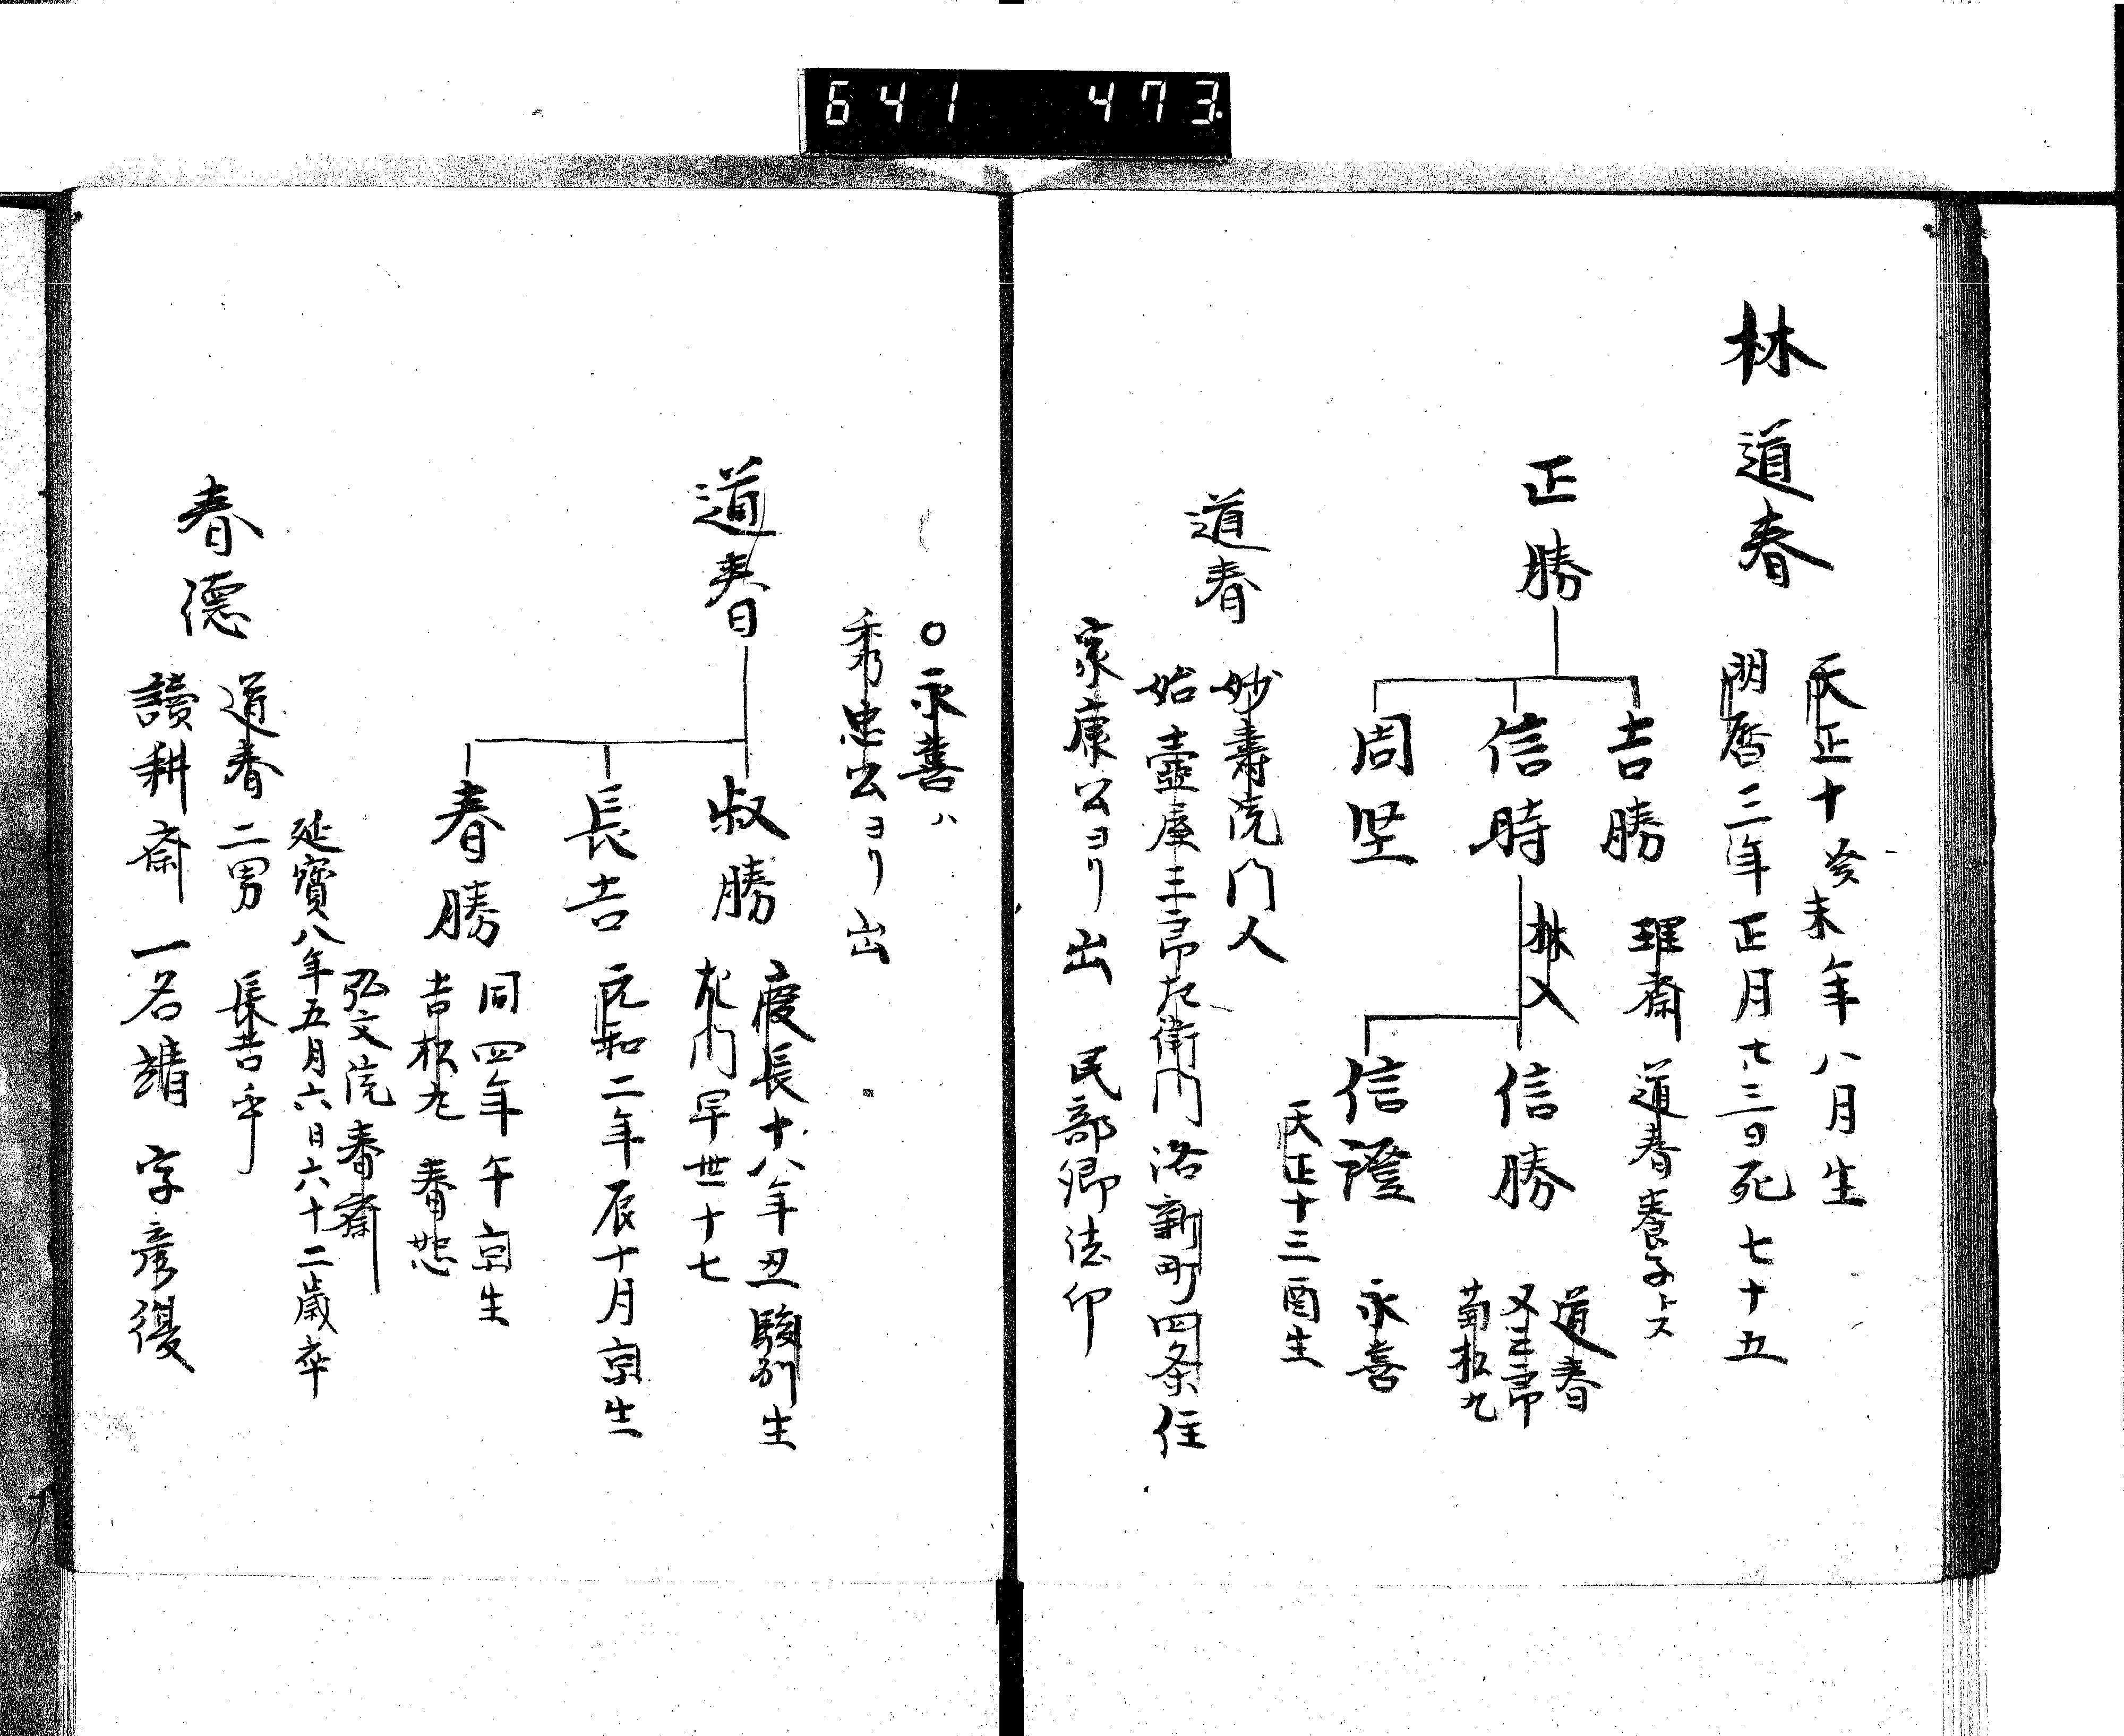 641 473
林道春
天正十癸未年八月生
明暦三年正月廿三日死七十五
正勝
吉勝 理齋 道春養子トス
信時 林入
周堅
信勝 道春
又三郎
菊松丸
信澄 永喜
天正十三酉生
道春 妙壽院門人
始壺屋三郎左衛門洛新町四条住
家康公ヨリ出 民部卿法印
○永喜ハ
秀忠公ヨリ出
道春
叔勝 慶長十八年丑駿州生
左門早世十七
長吉 元和二年辰十月京生
春勝 同四年午京生
吉松丸 春恕
弘文院春齋
延寶八年五月六日六十二歳卒
春德 道春二男 長吉乎
讀耕斎 一名靖 字彦復